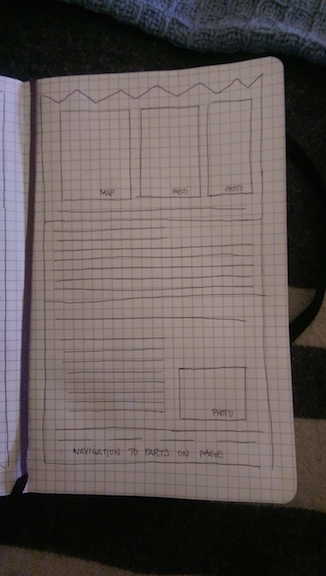 MAP PHOTO PHOTO
PHOTO
NAVIGATION TO PARTS ON PAGE